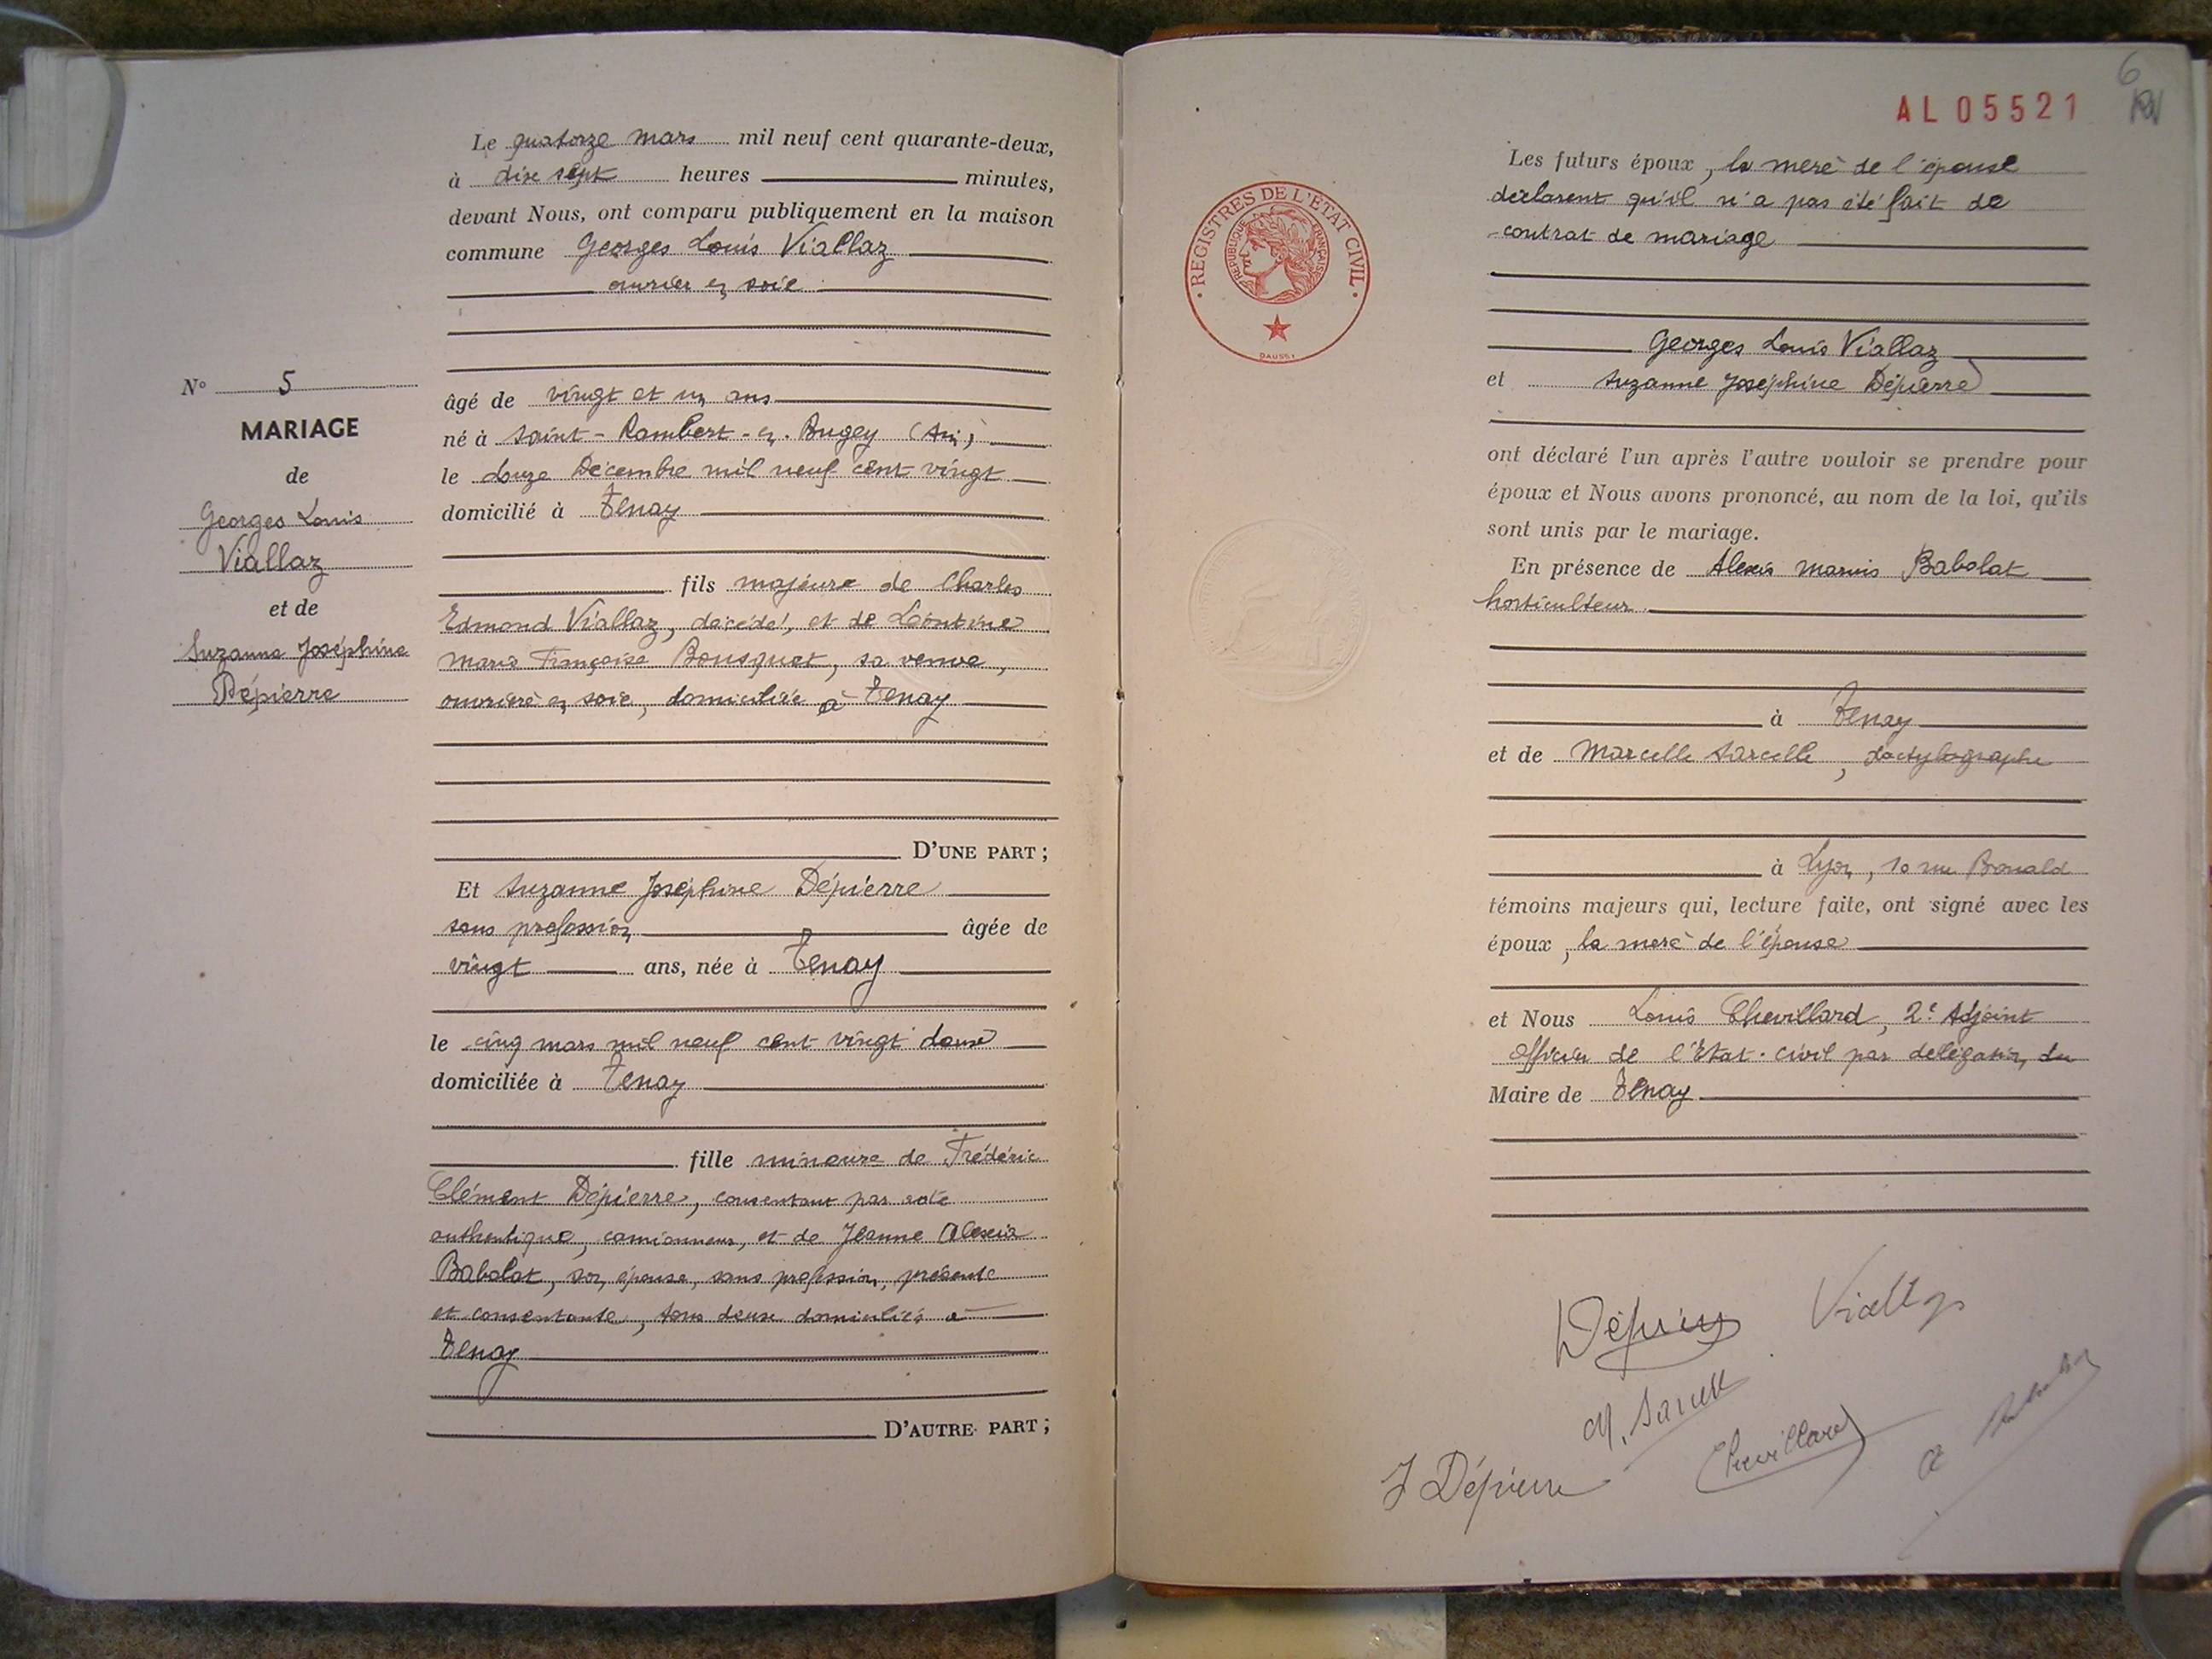 Le quatorze mars mil neuf cent quarante-deux,
à dix sept heures minutes,
devant Nous, ont comparu publiquement en la maison
commune Georges Louis Viallaz
ouvrier en soie
N° 5
MARIAGE
de
Georges Louis
Viallaz
et de
Suzanne Joséphine
Dépierre
âgé de vingt et un ans
né à Saint-Rambert-en-Bugey (Ain)
le douze Décembre mil neuf cent vingt
domicilié à Tenay
fils majeure de Charles
Edmond Viallaz, décédé, et de Léontine
Marie Françoise Bousquet, sa veuve,
ouvrière en soie, domiciliée à Tenay
D'UNE PART ;
Et Suzanne Joséphine Dépierre
sans profession âgée de
vingt ans, née à Tenay
le cinq mars mil neuf cent vingt deux
domiciliée à Tenay
fille mineure de Frédéric
Clément Dépierre, consentant par acte
authentique, camionneur, et de Jeanne Alexia
Babolat, son épouse, sans profession, présente
et consentante, tous deux domiciliés à
Tenay
D'AUTRE PART ;
6
AL05521
REGISTRES DE L'ETAT CIVIL
REPUBLIQUE FRANÇAISE
Les futurs époux, la merè de l'épouse
déclarent qu'il n'a pas été fait de
contrat de mariage
Georges Louis Viallaz
et Suzanne Joséphine Dépierre
ont déclaré l'un après l'autre vouloir se prendre pour
époux et Nous avons prononcé, au nom de la loi, qu'ils
sont unis par le mariage.
En présence de Alexis Marius Babolat
horticulteur
à Tenay
et de Marcelle Sarcelle, dactylographe
à Lyon, 10 rue Bonald
témoins majeurs qui, lecture faite, ont signé avec les
époux, la merè de l'épouse
et Nous Louis Chevillard, 2e Adjoint
officier de l'Etat-civil par délégation du
Maire de Tenay
Dépierre Viallaz
M. Sarcelle
J Dépierre Chevillard